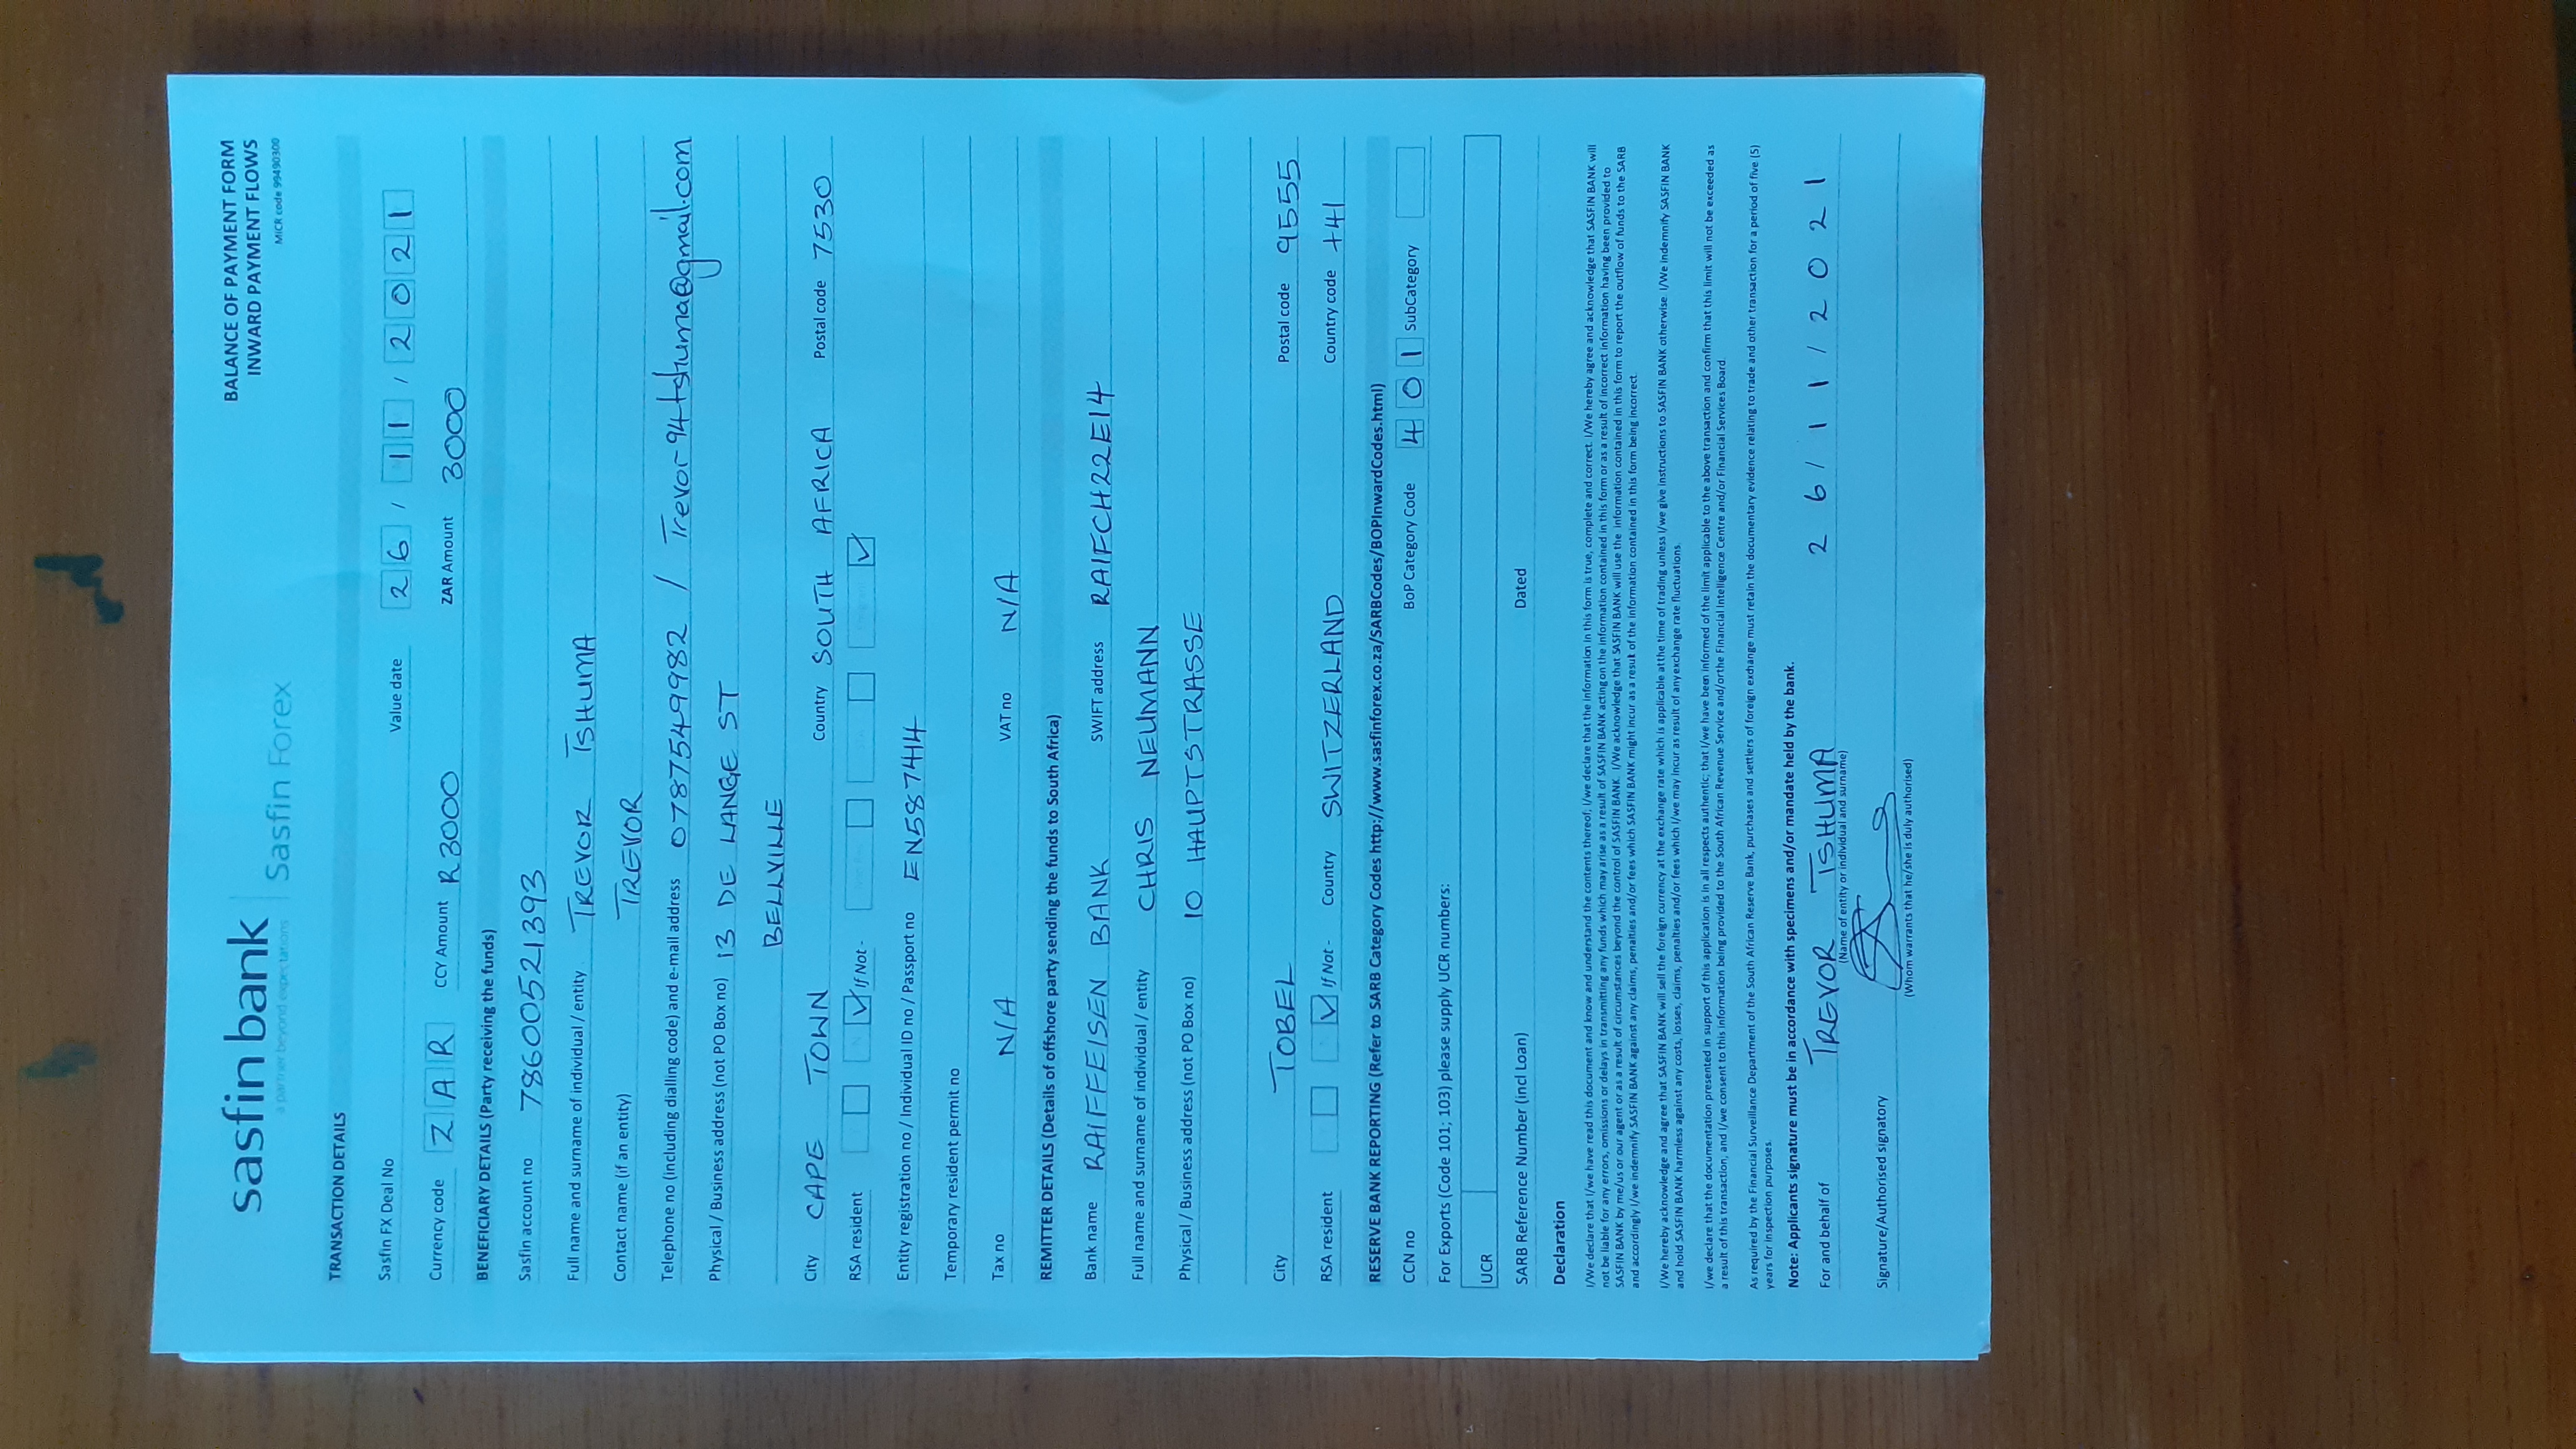 sasfin bank
a partner beyond expectations
Sasfin Forex
BALANCE OF PAYMENT FORM
INWARD PAYMENT FLOWS
MICR code 99490300
TRANSACTION DETAILS
Sasfin FX Deal No Value date 26 / 11 / 2021
Currency code ZAR CCY Amount R3000 ZAR Amount 3000
BENEFICIARY DETAILS (Party receiving the funds)
Sasfin account no 78600521393
Full name and surname of individual / entity TREVOR TSHUMA
Contact name (if an entity) TREVOR
Telephone no (including dialling code) and e-mail address 0787549982 / Trevor94tshuma@gmail.com
Physical / Business address (not PO Box no) 13 DE LANGE ST
BELLVILLE
City CAPE TOWN Country SOUTH AFRICA Postal code 7530
RSA resident If Not -
Entity registration no / Individual ID no / Passport no EN587414
Temporary resident permit no
Tax no N/A VAT no N/A
REMITTER DETAILS (Details of offshore party sending the funds to South Africa)
Bank name RAIFFEISEN BANK SWIFT address RAIFCH22E14
Full name and surname of individual / entity CHRIS NEUMANN
Physical / Business address (not PO Box no) 10 HAUPTSTRASSE
City TOBEL Postal code 9555
RSA resident If Not - Country SWITZERLAND Country code +41
RESERVE BANK REPORTING (Refer to SARB Category Codes http://www.sasfinforex.co.za/SARBCodes/BOPInwardCodes.html)
CCN no BoP Category Code 401 SubCategory
For Exports (Code 101; 103) please supply UCR numbers:
UCR
SARB Reference Number (incl Loan) Dated
Declaration
I/We declare that I/we have read this document and know and understand the contents thereof; I/we declare that the information in this form is true, complete and correct. I/We hereby agree and acknowledge that SASFIN BANK will
not be liable for any errors, omissions or delays in transmitting any funds which may arise as a result of SASFIN BANK acting on the information contained in this form or as a result of incorrect information having been provided to
SASFIN BANK by me/us or our agent or as a result of circumstances beyond the control of SASFIN BANK. I/We acknowledge that SASFIN BANK will use the information contained in this form to report the outflow of funds to the SARB
and accordingly I/we indemnify SASFIN BANK against any claims, penalties and/or fees which SASFIN BANK might incur as a result of the information contained in this form being incorrect.
I/We hereby acknowledge and agree that SASFIN BANK will sell the foreign currency at the exchange rate which is applicable atthe time of trading unless I/we give instructions to SASFIN BANK otherwise. I/We indemnify SASFIN BANK
and hold SASFIN BANK harmless against any costs, losses, claims, penalties and/or fees which I/we may incur as result of anyexchange rate fluctuations.
I/we declare that the documentation presented in support of this application is in all respects authentic; that I/we have been informed of the limit applicable to the above transaction and confirm that this limit will not be exceeded as
a result of this transaction, and I/we consent to this information being provided to the South African Revenue Service and/orthe Financial Intelligence Centre and/or Financial Services Board.
As required by the Financial Surveillance Department of the South African Reserve Bank, purchases and settlers of foreign exchange must retain the documentary evidence relating to trade and other transaction for a period of five (5)
years for inspection purposes.
Note: Applicants signature must be in accordance with specimens and/or mandate held by the bank.
For and behalf of TREVOR TSHUMA 26/11/2021
(Name of entity or individual and surname)
Signature/Authorised signatory
(Whom warrants that he/she is duly authorised)